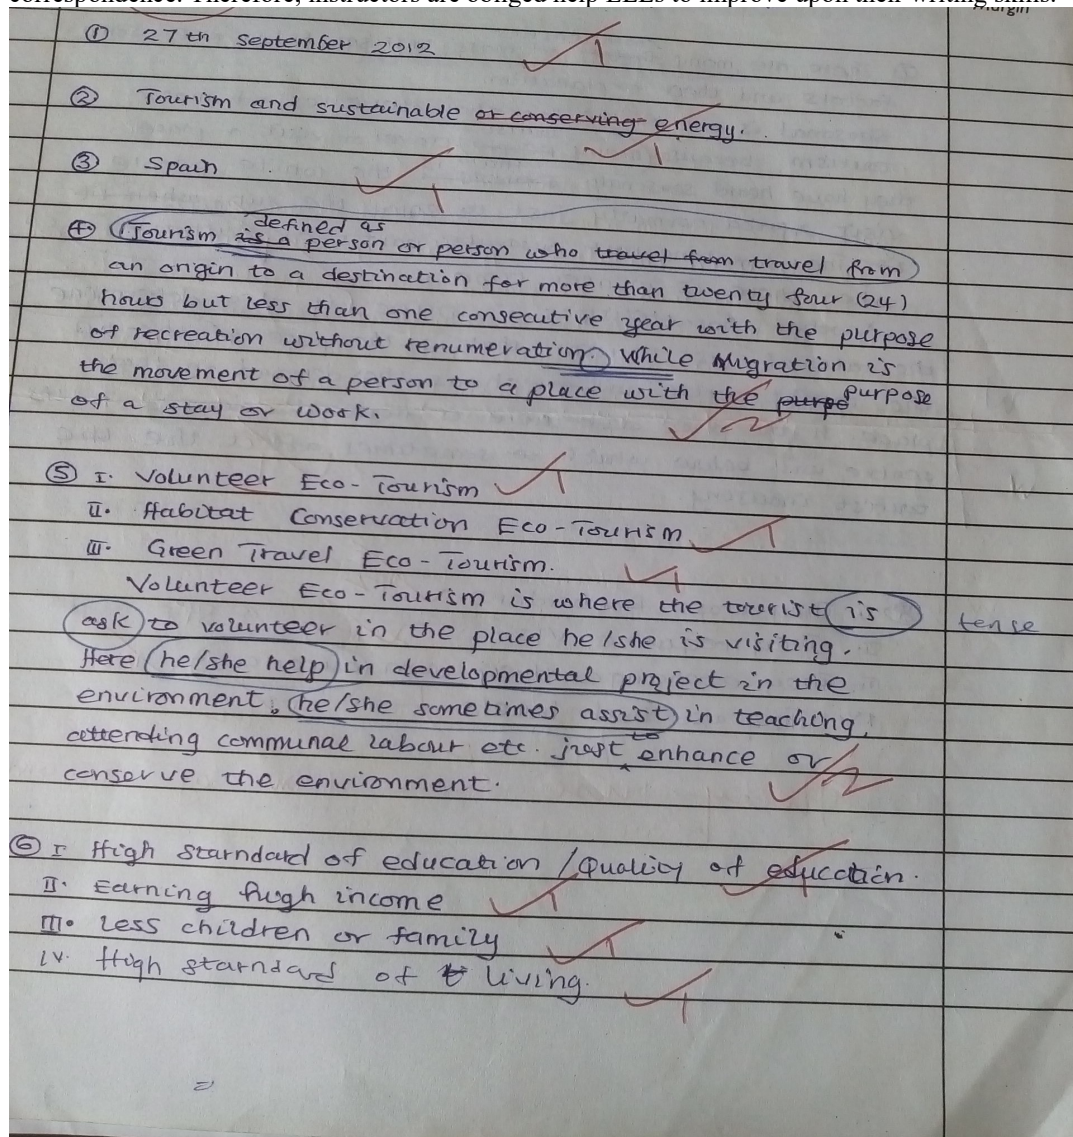 correspondence. Therefore, instructors are obliged help ELLs to improve upon their writing skills.
Margin
① 27th september 2012 1
② Tourism and sustainable or conserving energy. 1
③ Spain 1
defined as
④ Tourism is a person or person who travel from travel from
an origin to a destination for more than twenty four (24)
hours but less than one consecutive year with the purpose
of recreation without renumeration. While Migration is
the movement of a person to a place with the purpe purpose
of a stay or work. 2
⑤ I. Volunteer Eco-Tourism 1
II. Habitat Conservation Eco-Tourism 1
III. Green Travel Eco-Tourism. 1
Volunteer Eco-Tourism is where the tourist is tense
ask to volunteer in the place he/she is visiting.
Here he/she help in developmental project in the
environment, he/she sometimes assist in teaching,
attending communal labour etc. just to enhance or
conserve the environment. 2
⑥ I High starndard of education /Quality of education. 1
II. Earning high income 1
III. Less children or family 1
IV. High starndard of living. 1